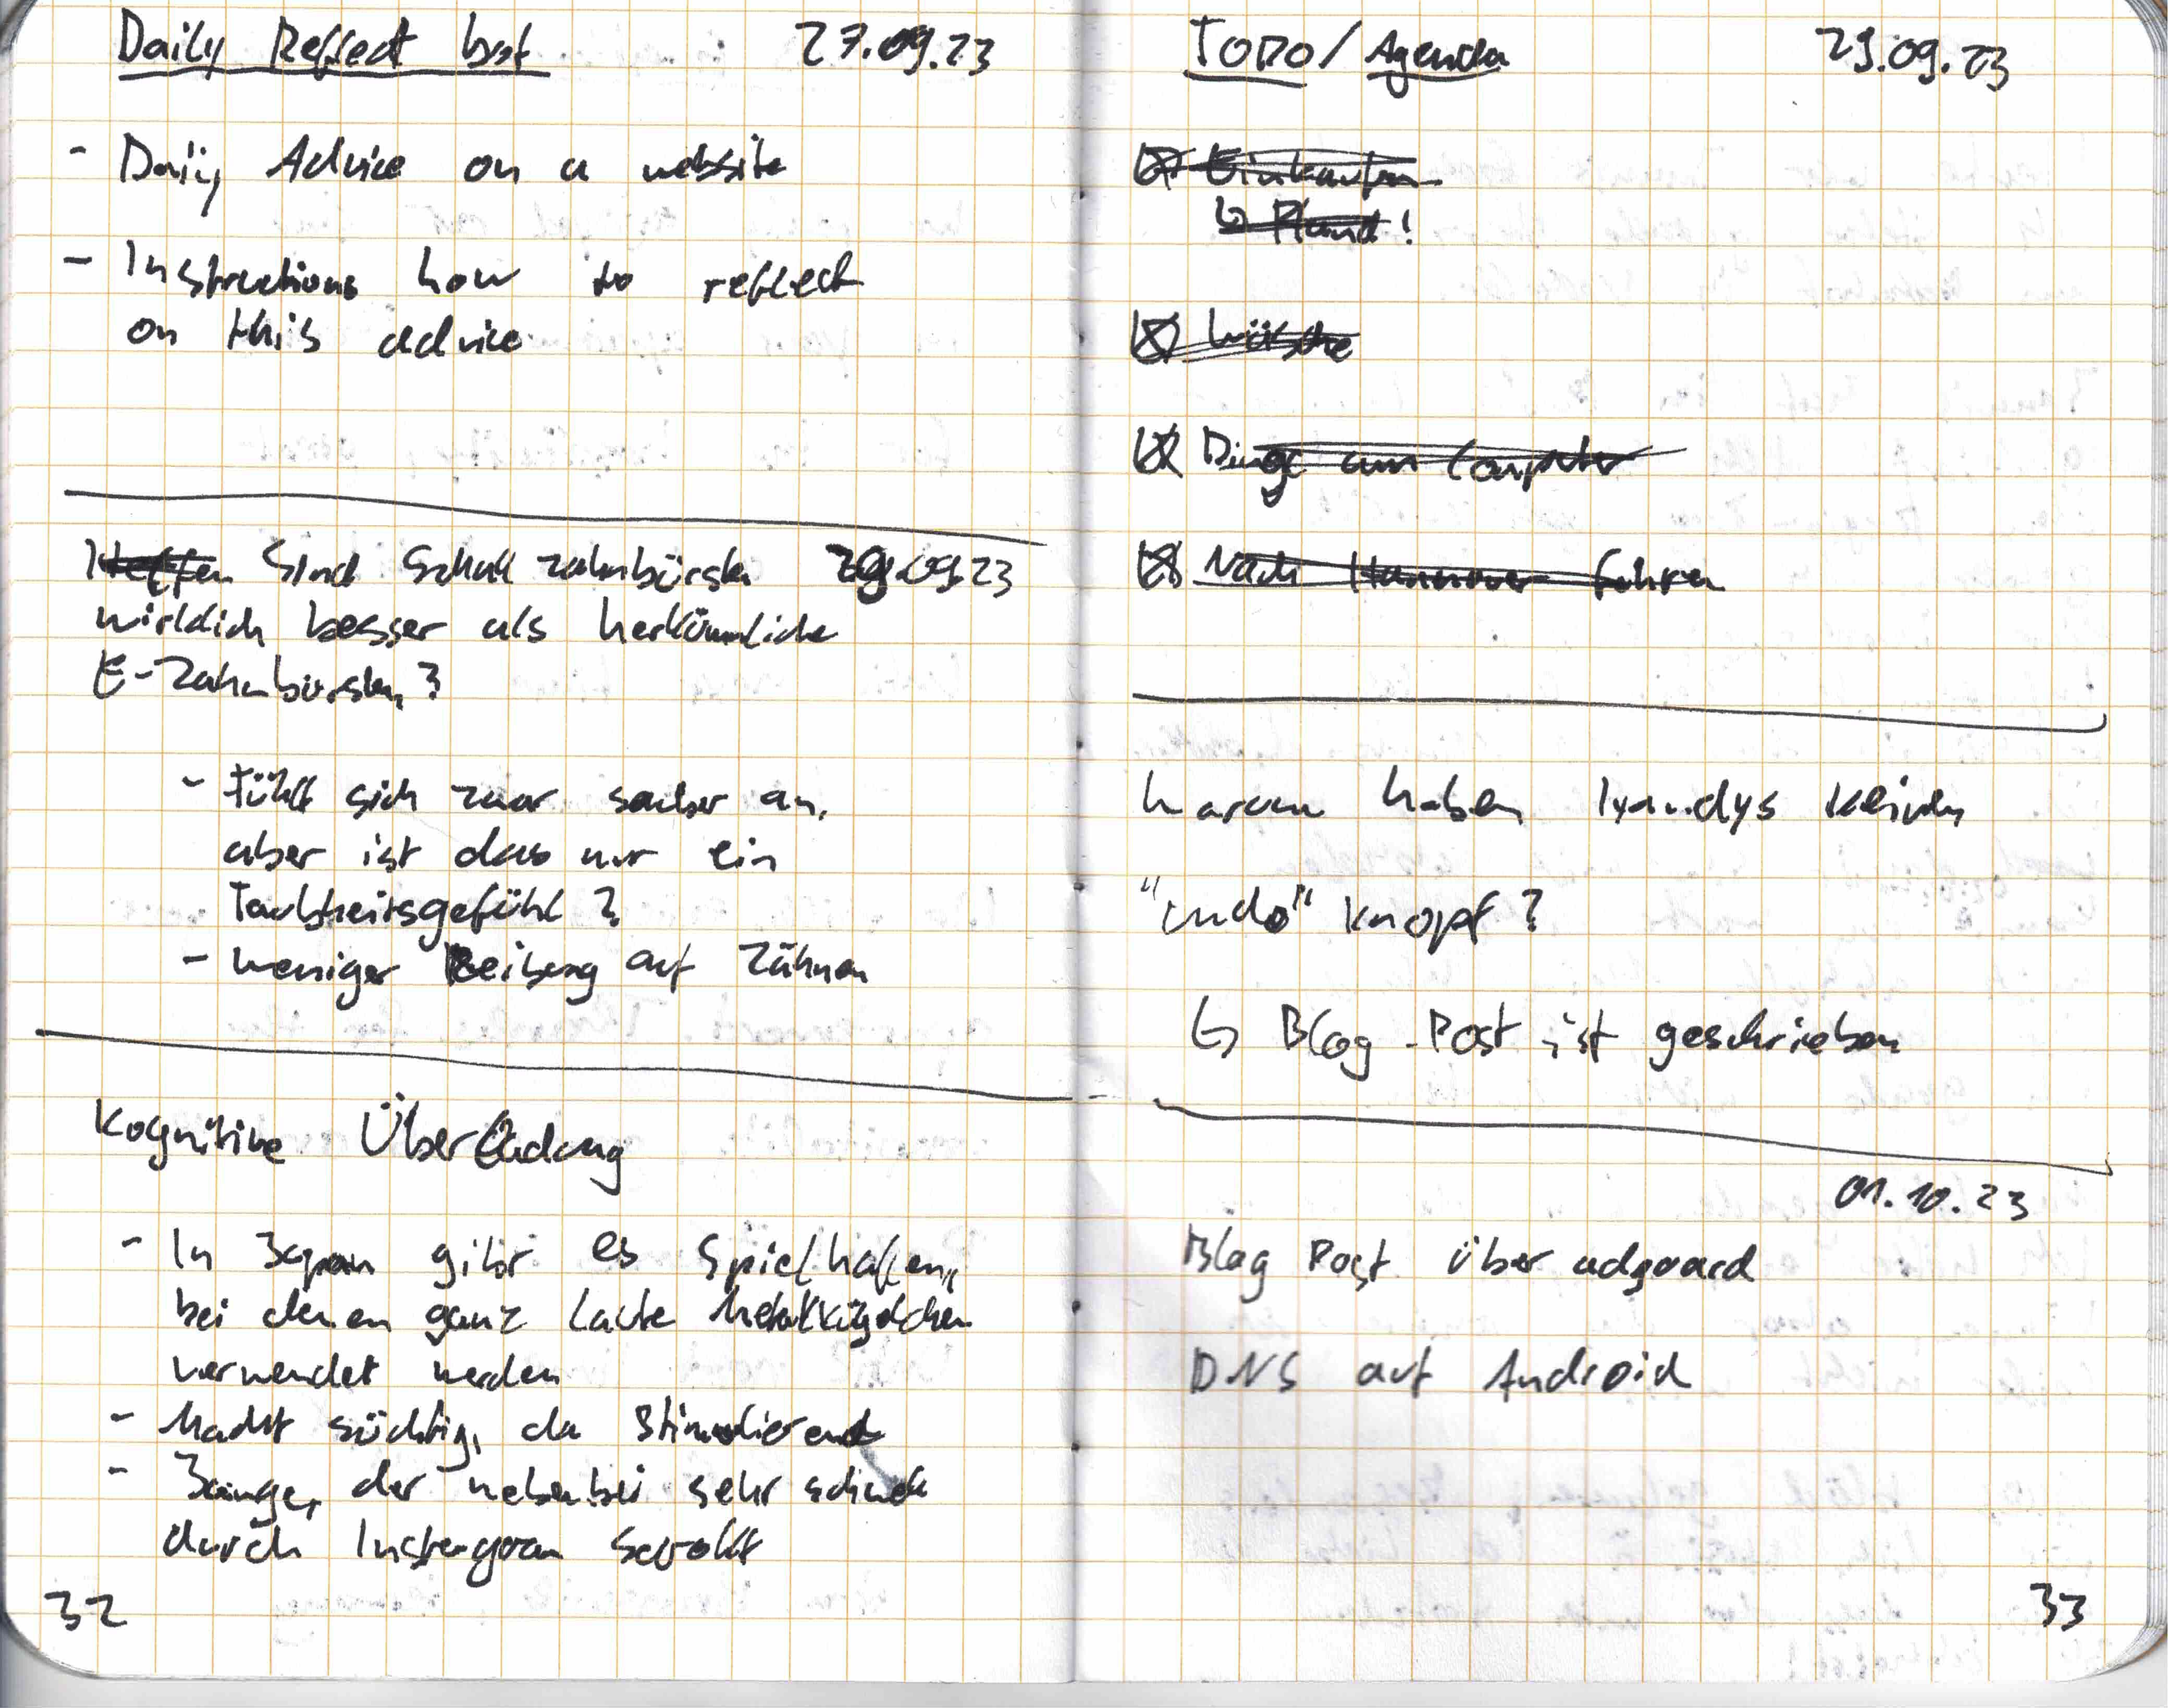 Daily Reflect bot 27.09.23
- Daily Advice on a website
- Instructions how to reflect
on this advice
Helfen Sind Schallzahnbürsten 29.09.23
wirklich besser als herkömmliche
E-Zahnbürsten?
- Fühlt sich zwar sauber an,
aber ist das nur ein
Taubheitsgefühl?
- weniger Reibung auf Zähnen
Kognitive Überladung
- In Japan gibt es Spielhallen,
bei denen ganz laute Metallkügelchen
verwendet werden
- Macht süchtig, da stimulierend
- Junge, der nebenbei sehr schnell
durch Instagram scrollt
32
TODO/Agenda 29.09.23
☒ Einkaufen
↳ Pfand!
☒ Wäsche
☒ Dinge am Computer
☒ Nach Hannover fahren
Warum haben Handys keinen
"undo" Knopf?
↳ Blog-Post ist geschrieben
01.10.23
Blog Post über adguard
DNS auf Android
33